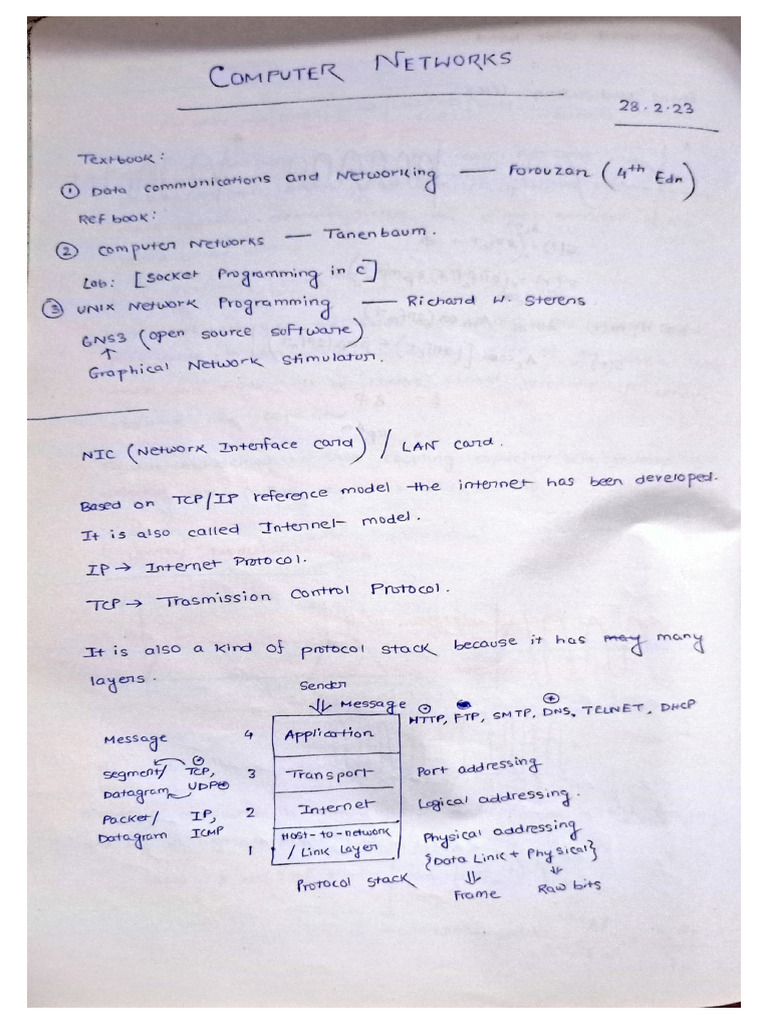 COMPUTER NETWORKS
28.2.23
Textbook:
① Data communications and Networking — Forouzan (4th Edn)
Ref book:
② Computer Networks — Tanenbaum.
Lab: [Socket Programming in C]
③ UNIX Network Programming — Richard W. Sterens
GNS3 (open source software)
↑
Graphical Network Stimulator.
NIC (Network Interface card) / LAN card.
Based on TCP/IP reference model the internet has been developed.
It is also called Internet model.
IP → Internet Protocol.
TCP → Trasmission Control Protocol.
It is also a kind of protocol stack because it has may many
layers.
Sender
⇓ Message
HTTP, FTP, SMTP, DNS, TELNET, DHCP
Message 4 Application
Segment/ TCP, 3 Transport Port addressing
Datagram UDP
Packet/ IP, 2 Internet Logical addressing.
Datagram ICMP
1 Host-to-network Physical addressing
/ Link Layer {Data Link + Physical}
⇓ ⇓
Protocol stack Frame Raw bits